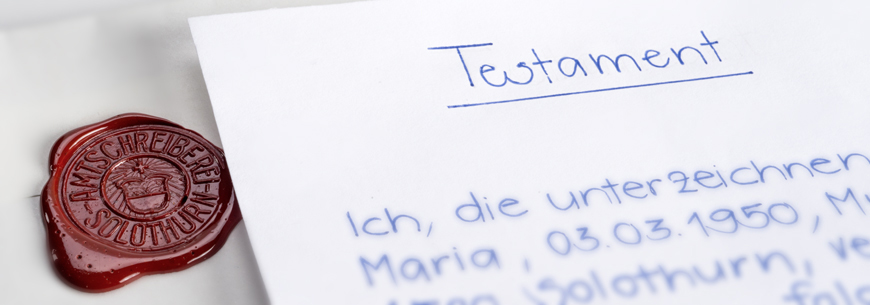 AMTSCHREIBEREI
SOLOTHURN
Testament
Ich, die unterzeichnen
Maria, 03.03.1950, M
Solothurn, ve